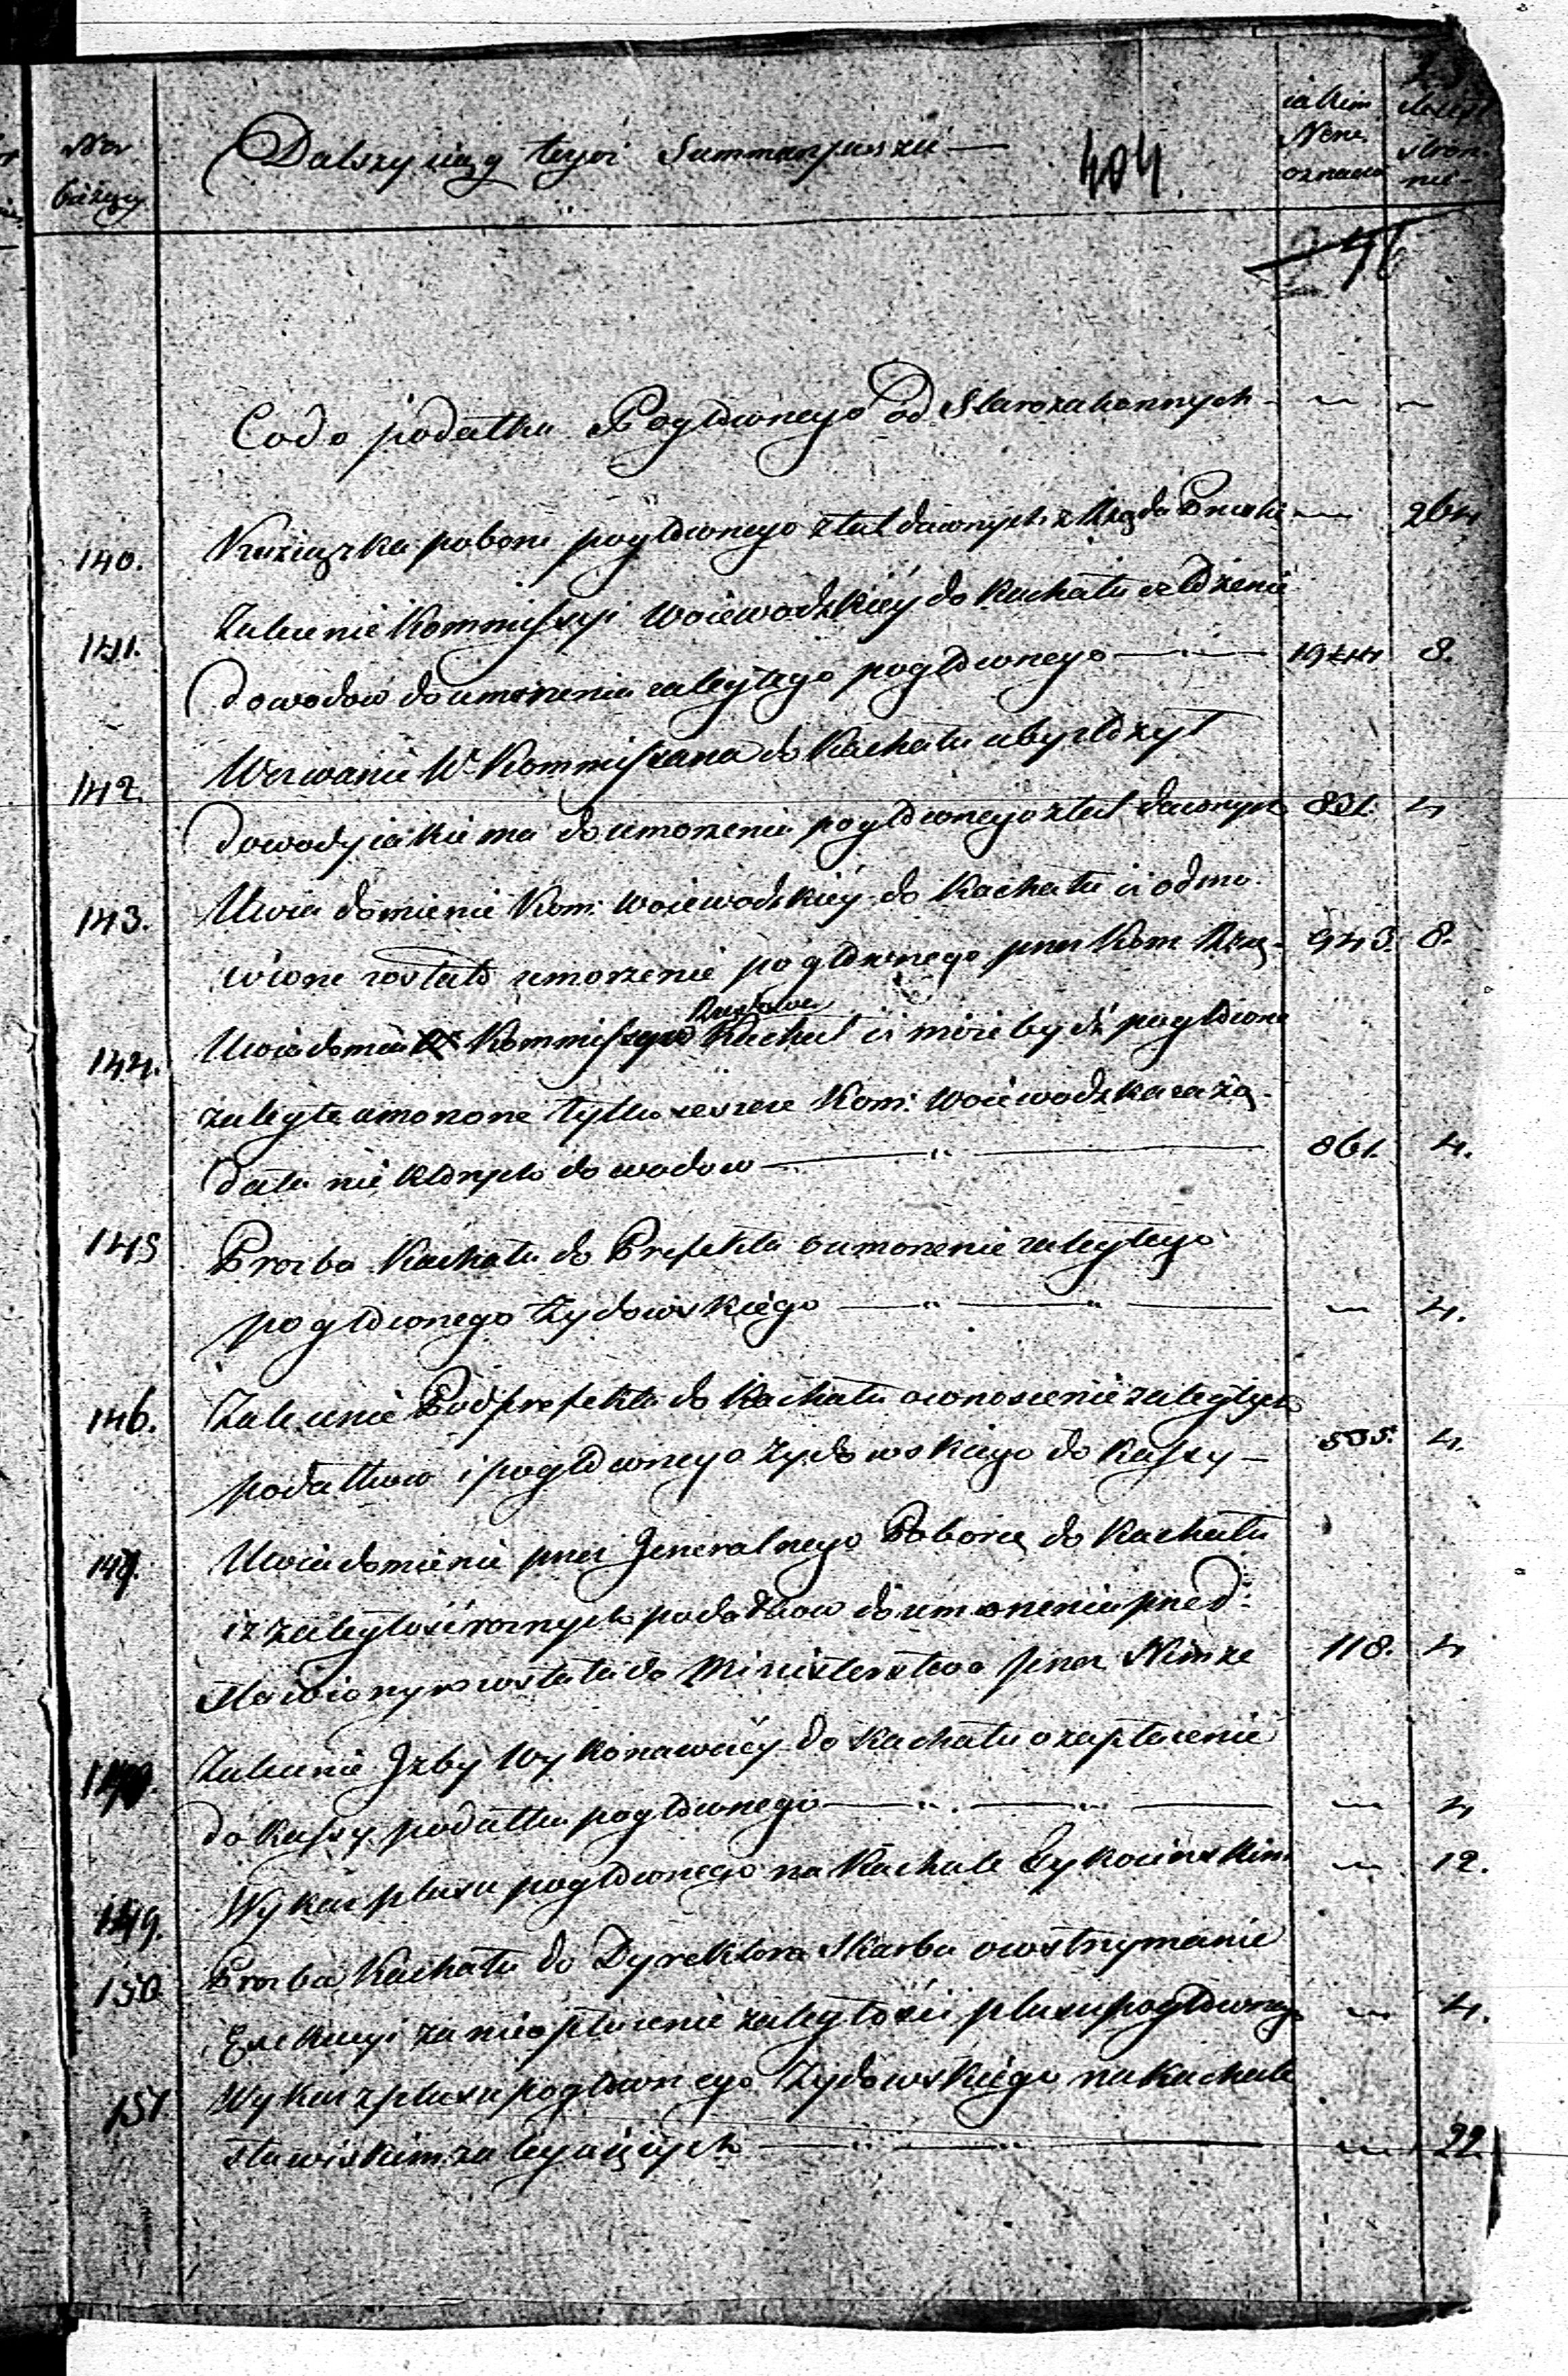 Nro bieżący
Dalszy ciąg tegoż Summaryuszu —
404.
iakim Nrem oznacza
stron nic
Co do podatku Pogłownego od Starozakonnych — —
140. Xsiążka poboru pogłownego z lat dawnych z Rządu Prusk: — 264
141. Zalecenie Kommissyi Woiewodzkiéy do Kachału o złożenie
dowodow do umorzenia zaległego pogłownego — 8.
142. Wezwanie W. Kommissarza do Kachału aby złożył
dowody iakie ma do umorzenia pogłownego z lat dawnych 831. 4
143. Uwiadomienie Kom: Woiewodzkiéy do Kachału iż odmo-
wione zostało umorzenie pogłownego przez Kom: Rzą- 943. 8.
144. Uwiadomia Kommissyi Kachał iż może bydź pogłowne
zaległe umorzone tylko jeszcze Kom: Woiewodzka zażą-
dała niektórych dowodow — 861. 4.
145 Prozba Kachału do Prefekta o umorzenie zaległego
pogłownego Żydowskiégo — — 4.
146. Zalecenie Podprefekta do Kachału o wnoszenie zaległych
podatkow i pogłownego Żydowskiego do Kassy — 535. 4.
147. Uwiadomienie przez Jeneralnego Poborcę do Kachału
iż zaległości roznych podatkow do umorzenia przed-
stawionymi zostały do Ministerstwa przez Nimże 118. 4
148. Zalecenie Jzby Wykonawczéy do Kachału o zapłacenie
do Kassy podatku pogłownego — — 4
149. Wykaz plusu pogłownego na Kachale Tykocinskim — 12.
150 Prozba Kachału do Dyrektora Skarbu o wstrzymanie
Exekucyi za nieopłacenie zaległości plusu pogłownego — 4.
151. Wykaz z plusu pogłownego Żydowskiégo na Kachale
Stawiskim zalegaiących — — 22